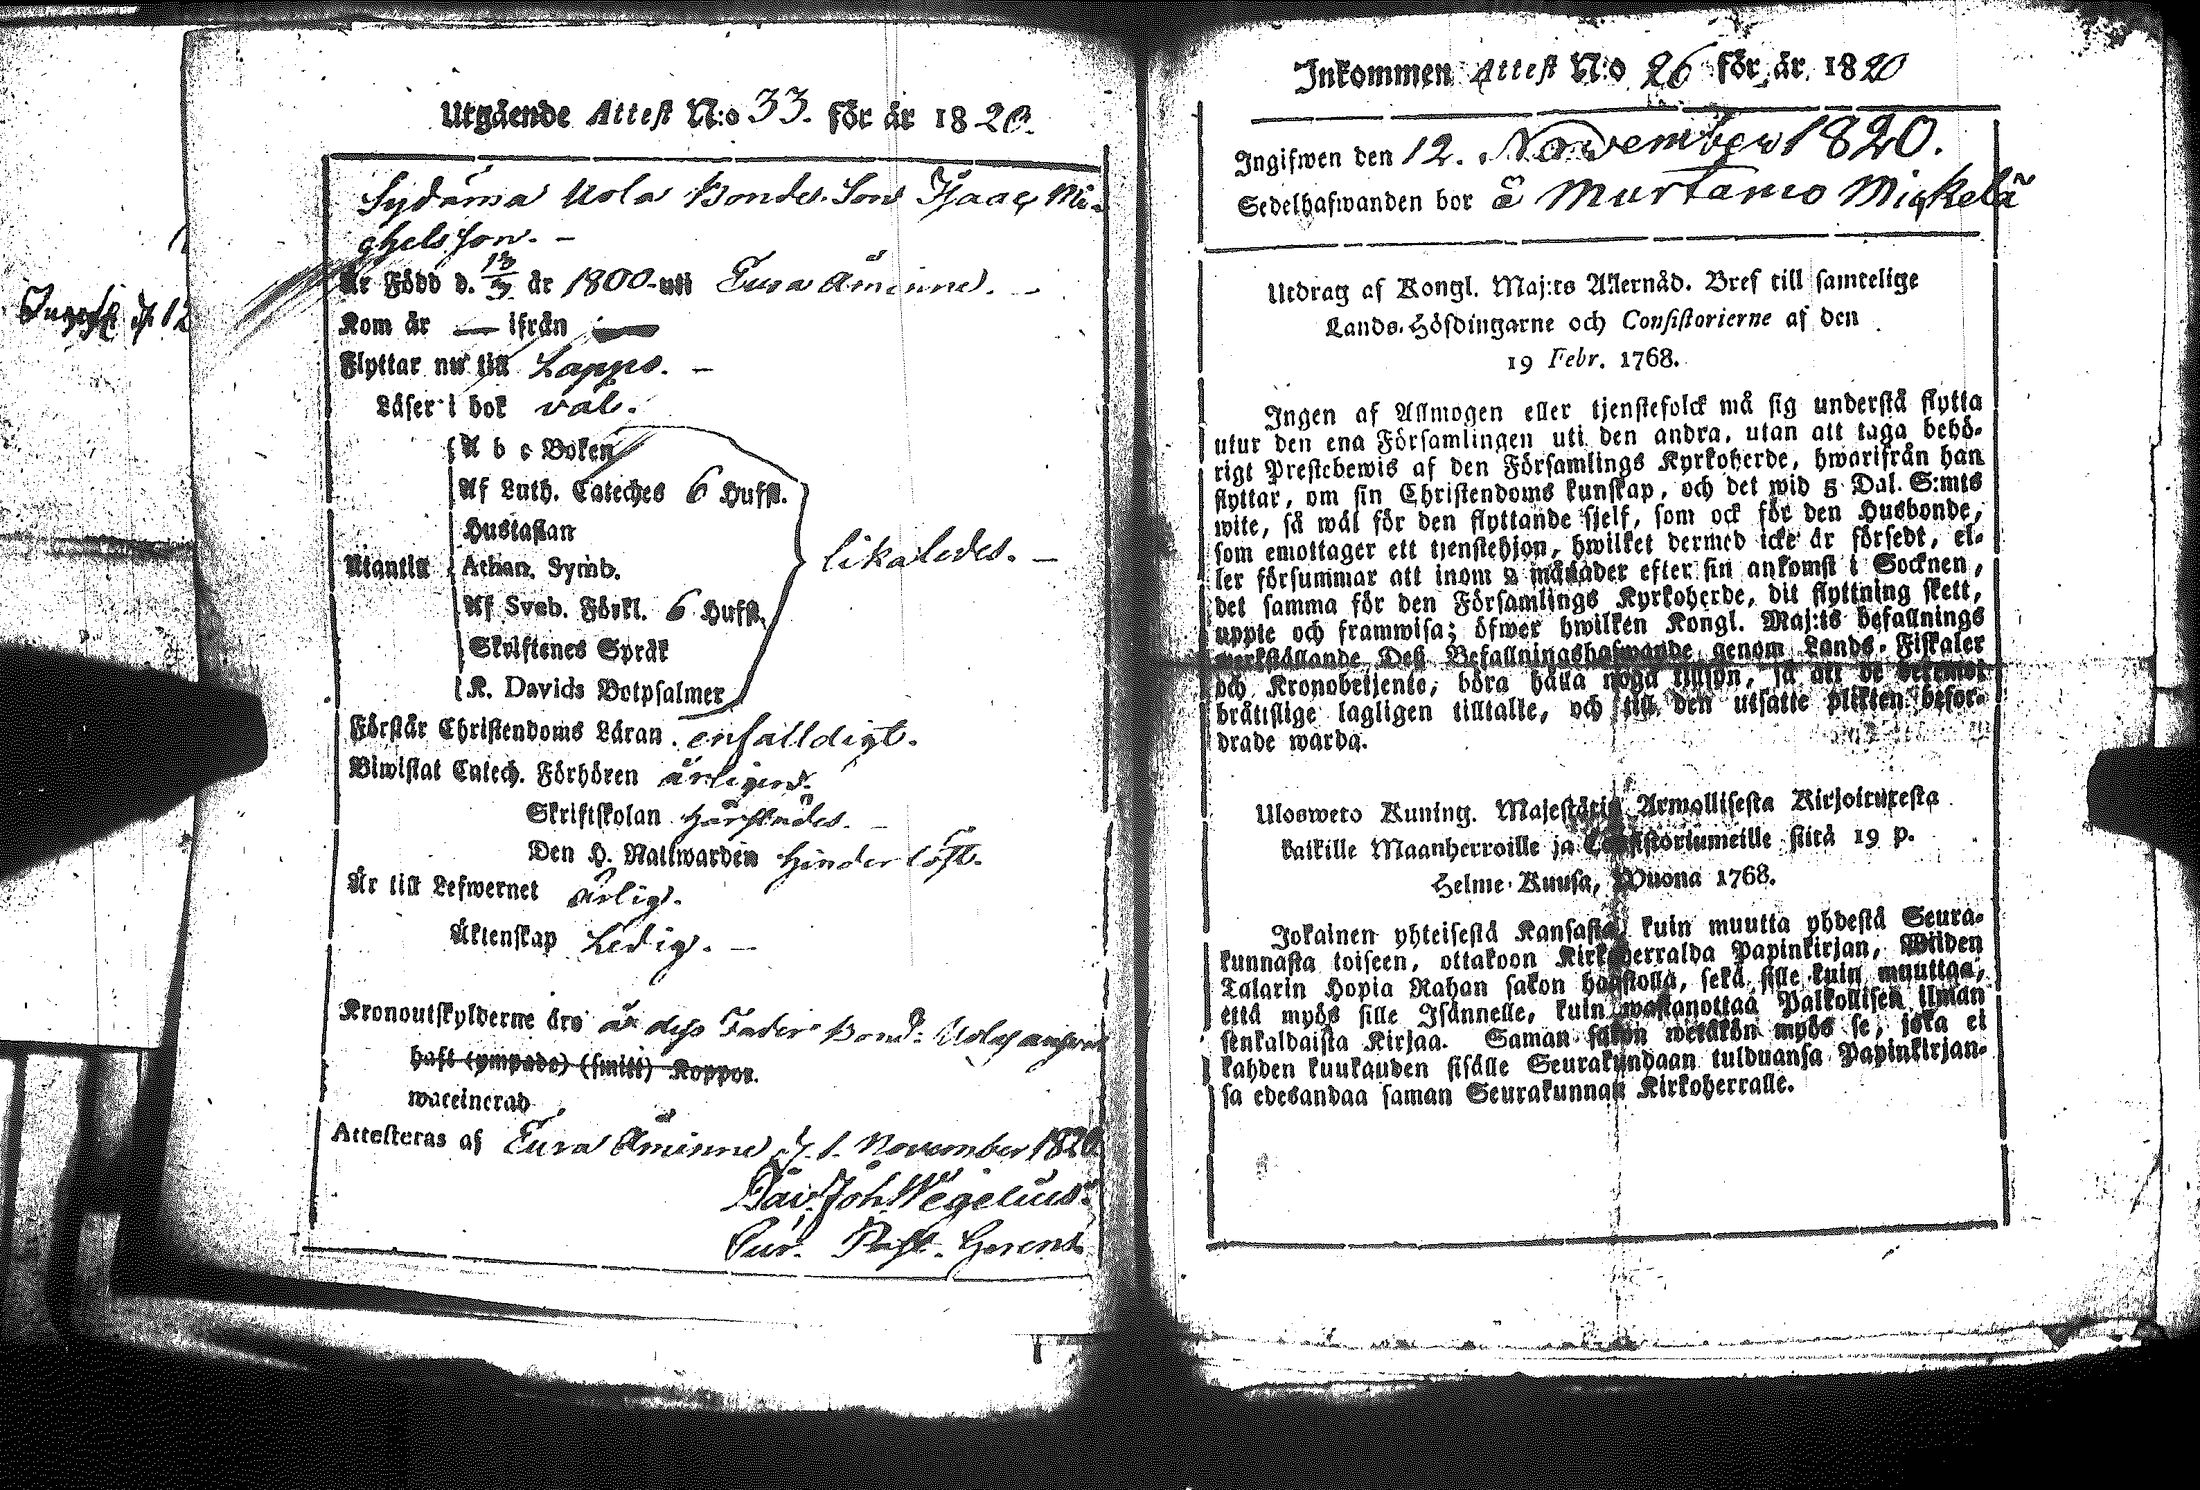 Utgående Attest N:o 33. för år 1820.
Sydäma Uola Bonde Son Isaac Mi-
ghels son. –
Är Född d. 13/3 år 1800 uti Eura Åminne. –
Kom år — ifrån —
Flyttar nu till Lappo. –
Läser i bok väl.
A b c Boken
Af Luth. Cateches 6 Hufst.
Hustaflan
Utantill Athan. Symb. likaledes. –
Af Sveb. Förkl. 6 Hufst.
Skriftenes Språk
K. Davids Botpsalmer
Förstår Christendoms Läran enfalldigt.
Biwistat Catech. Förhören årligen.
Skriftskolan härstädes. –
Den H. Nattwarden hinderlöst.
Är till Lefwernet ärlig.
Äktenskap Ledig. –
Kronoutskylderne års är dess Fader Bond. Uola
haft (ympade) (smitt) Koppor.
waccinerad
Attesteras af Eura Åminne d. 1. November 1820
Dav. Joh. Wegelius
Past.
Ingifw. d. 12
Inkommen Attest N:o 26 för år 1820
Ingifwen den 12. November 1820.
Sedelhafwanden bor å Murtamo Mickelä
Utdrag af Kongl. Maj:ts Allernåd. Bref till samtelige
Lands-Höfdingarne och Consistorierne af den
19 Febr. 1768.
Ingen af Allmogen eller tjenstefolck må sig understå flytta
utur den ena Församlingen uti den andra, utan att taga behö-
rigt Prestebewis af den Församlings Kyrkoherde, hwarifrån han
flyttar, om sin Christendoms kunskap, och det wid 5 Dal. S:mts
wite, så wäl för den flyttande sjelf, som ock för den Husbonde,
som emottager ett tjenstehjon, hwilket dermed icke är försedt, el-
ler försummar att inom 2 månader efter sin ankomst i Socknen,
det samma för den Församlings Kyrkoherde, dit flyttning skett,
uppte och framwisa; öfwer hwilken Kongl. Maj:ts befallnings
werkställande Deß Befallningshafwande genom Lands-Fiskaler
och Kronobetjente, böra hålla noga tillsyn, så att de deremot
bråttslige lagligen tilltalte, och till den utsatte plikten befor-
drade warda.
Ulosweto Kuning. Majestätin Armollisesta Kirjoituxesta
kaikille Maanherroille ja Consistoriumeille siitä 19 p.
Helme-Kuusa, Wuona 1768.
Jokainen yhteisestä Kansasta, kuin muutta yhdestä Seura-
kunnasta toiseen, ottakoon Kirkoherralda Papinkirjan, Wiiden
Talarin Hopia Rahan sakon haastolla, sekä sille kuin muuttaa,
että myös sille Isännelle, kuin wastanottaa Palkollisen ilman
senkaldaista Kirjaa. Saman sakon wetäkön myös se, joka ei
kahden kuukauden sisälle Seurakundaan tulduansa Papinkirjan-
sa edesandaa saman Seurakunnan Kirkoherralle.